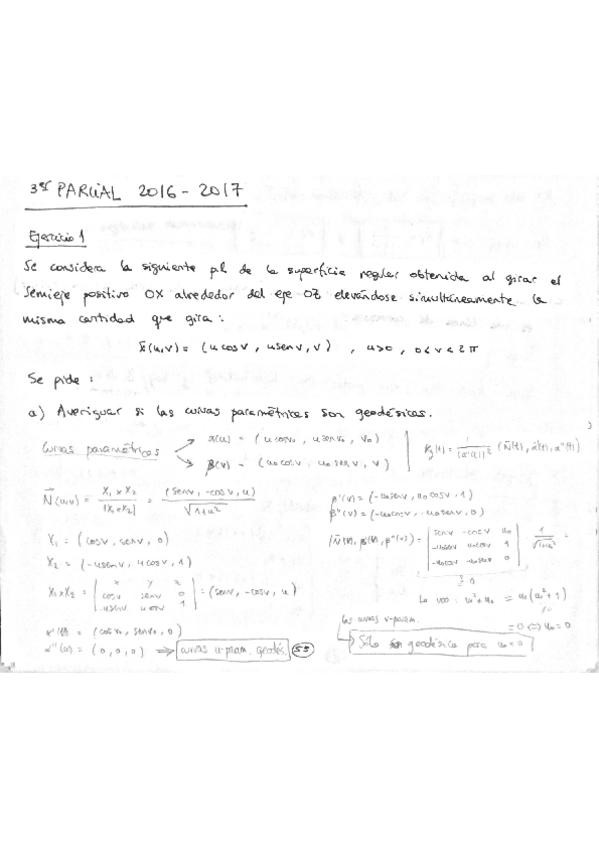 3er PARCIAL 2016-2017
Ejercicio 1
Se considera la siguiente p.l. de la superficie regular obtenida al girar el
semieje positivo OX alrededor del eje OZ elevándose simultáneamente la
misma cantidad que gira:
x̄(u,v) = (u cosv, u senv, v) , u>0, 0<v<2π
Se pide:
a) Averiguar si las curvas paramétricas son geodésicas.
Curvas paramétricas
α(u) = (u cosv₀, u senv₀, v₀)
β(v) = (u₀cosv, u₀senv, v)
N̄(u,v) = X₁×X₂ / |X₁×X₂| = (senv, -cosv, u) / √(1+u²)
X₁ = (cosv, senv, 0)
X₂ = (-usenv, ucosv, 1)
X₁×X₂ = | x y z ; cosv senv 0 ; -usenv ucosv 1 | = (senv, -cosv, u)
α'(u) = (cosv₀, senv₀, 0)
α''(u) = (0,0,0) ⇒ curvas u-param. geodés. SS
β'(v) = (-u₀senv, u₀cosv, 1)
β''(v) = (-u₀cosv, -u₀senv, 0)
| senv -cosv u₀ ; -u₀senv u₀cosv 1 ; -u₀cosv -u₀senv 0 | · 1/√(1+u₀²) =
= u₀(u₀²+1)
= 0 ⇔ u₀ = 0
las curvas v-param.
Sólo son geodésica para u₀=0